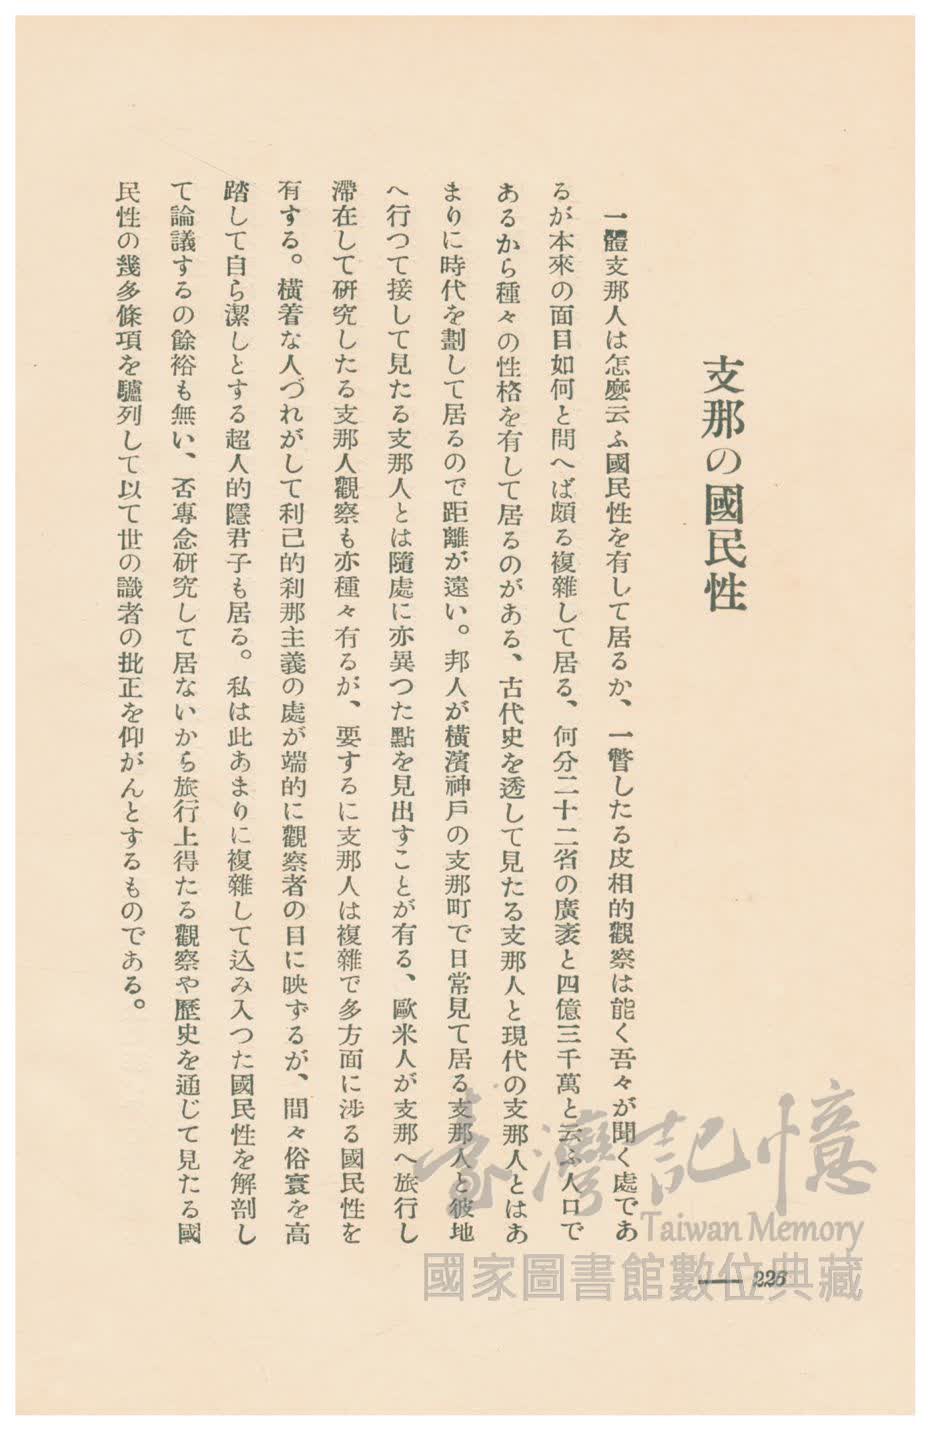 支那の國民性
一體支那人は怎麽云ふ國民性を有して居るか、一瞥したる皮相的觀察は能く吾々が聞く處であ
るが本來の面目如何と問へば頗る複雜して居る、何分二十二省の廣袤と四億三千萬と云ふ人口で
あるから種々の性格を有して居るのがある、古代史を透して見たる支那人と現代の支那人とはあ
まりに時代を劃して居るので距離が遠い。邦人が橫濱神戶の支那町で日常見て居る支那人と彼地
へ行つて接して見たる支那人とは隨處に亦異つた點を見出すことが有る、歐米人が支那へ旅行し
滯在して硏究したる支那人觀察も亦種々有るが、要するに支那人は複雜で多方面に涉る國民性を
有する。橫着な人づれがして利己的刹那主義の處が端的に觀察者の目に映ずるが、間々俗寰を高
踏して自ら潔しとする超人的隱君子も居る。私は此あまりに複雜して込み入つた國民性を解剖し
て論議するの餘裕も無い、否專念硏究して居ないから旅行上得たる觀察や歷史を通じて見たる國
民性の幾多條項を驢列して以て世の識者の批正を仰がんとするものである。
226
臺灣記憶
Taiwan Memory
國家圖書館數位典藏